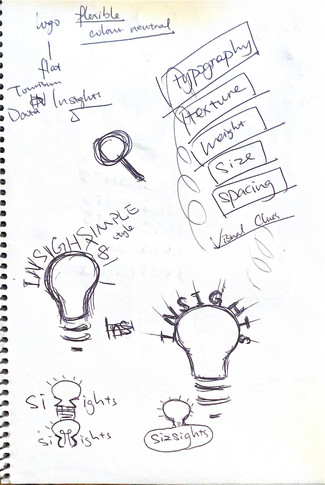 logo flexible
colour neutral
flat
Tourism
Data Insights
typography
texture
weight
size
spacing
Visual Clues
INSIGH SIMPLE
&
style
Ins
INSIGHTS
Si ights
si ights
sizsights